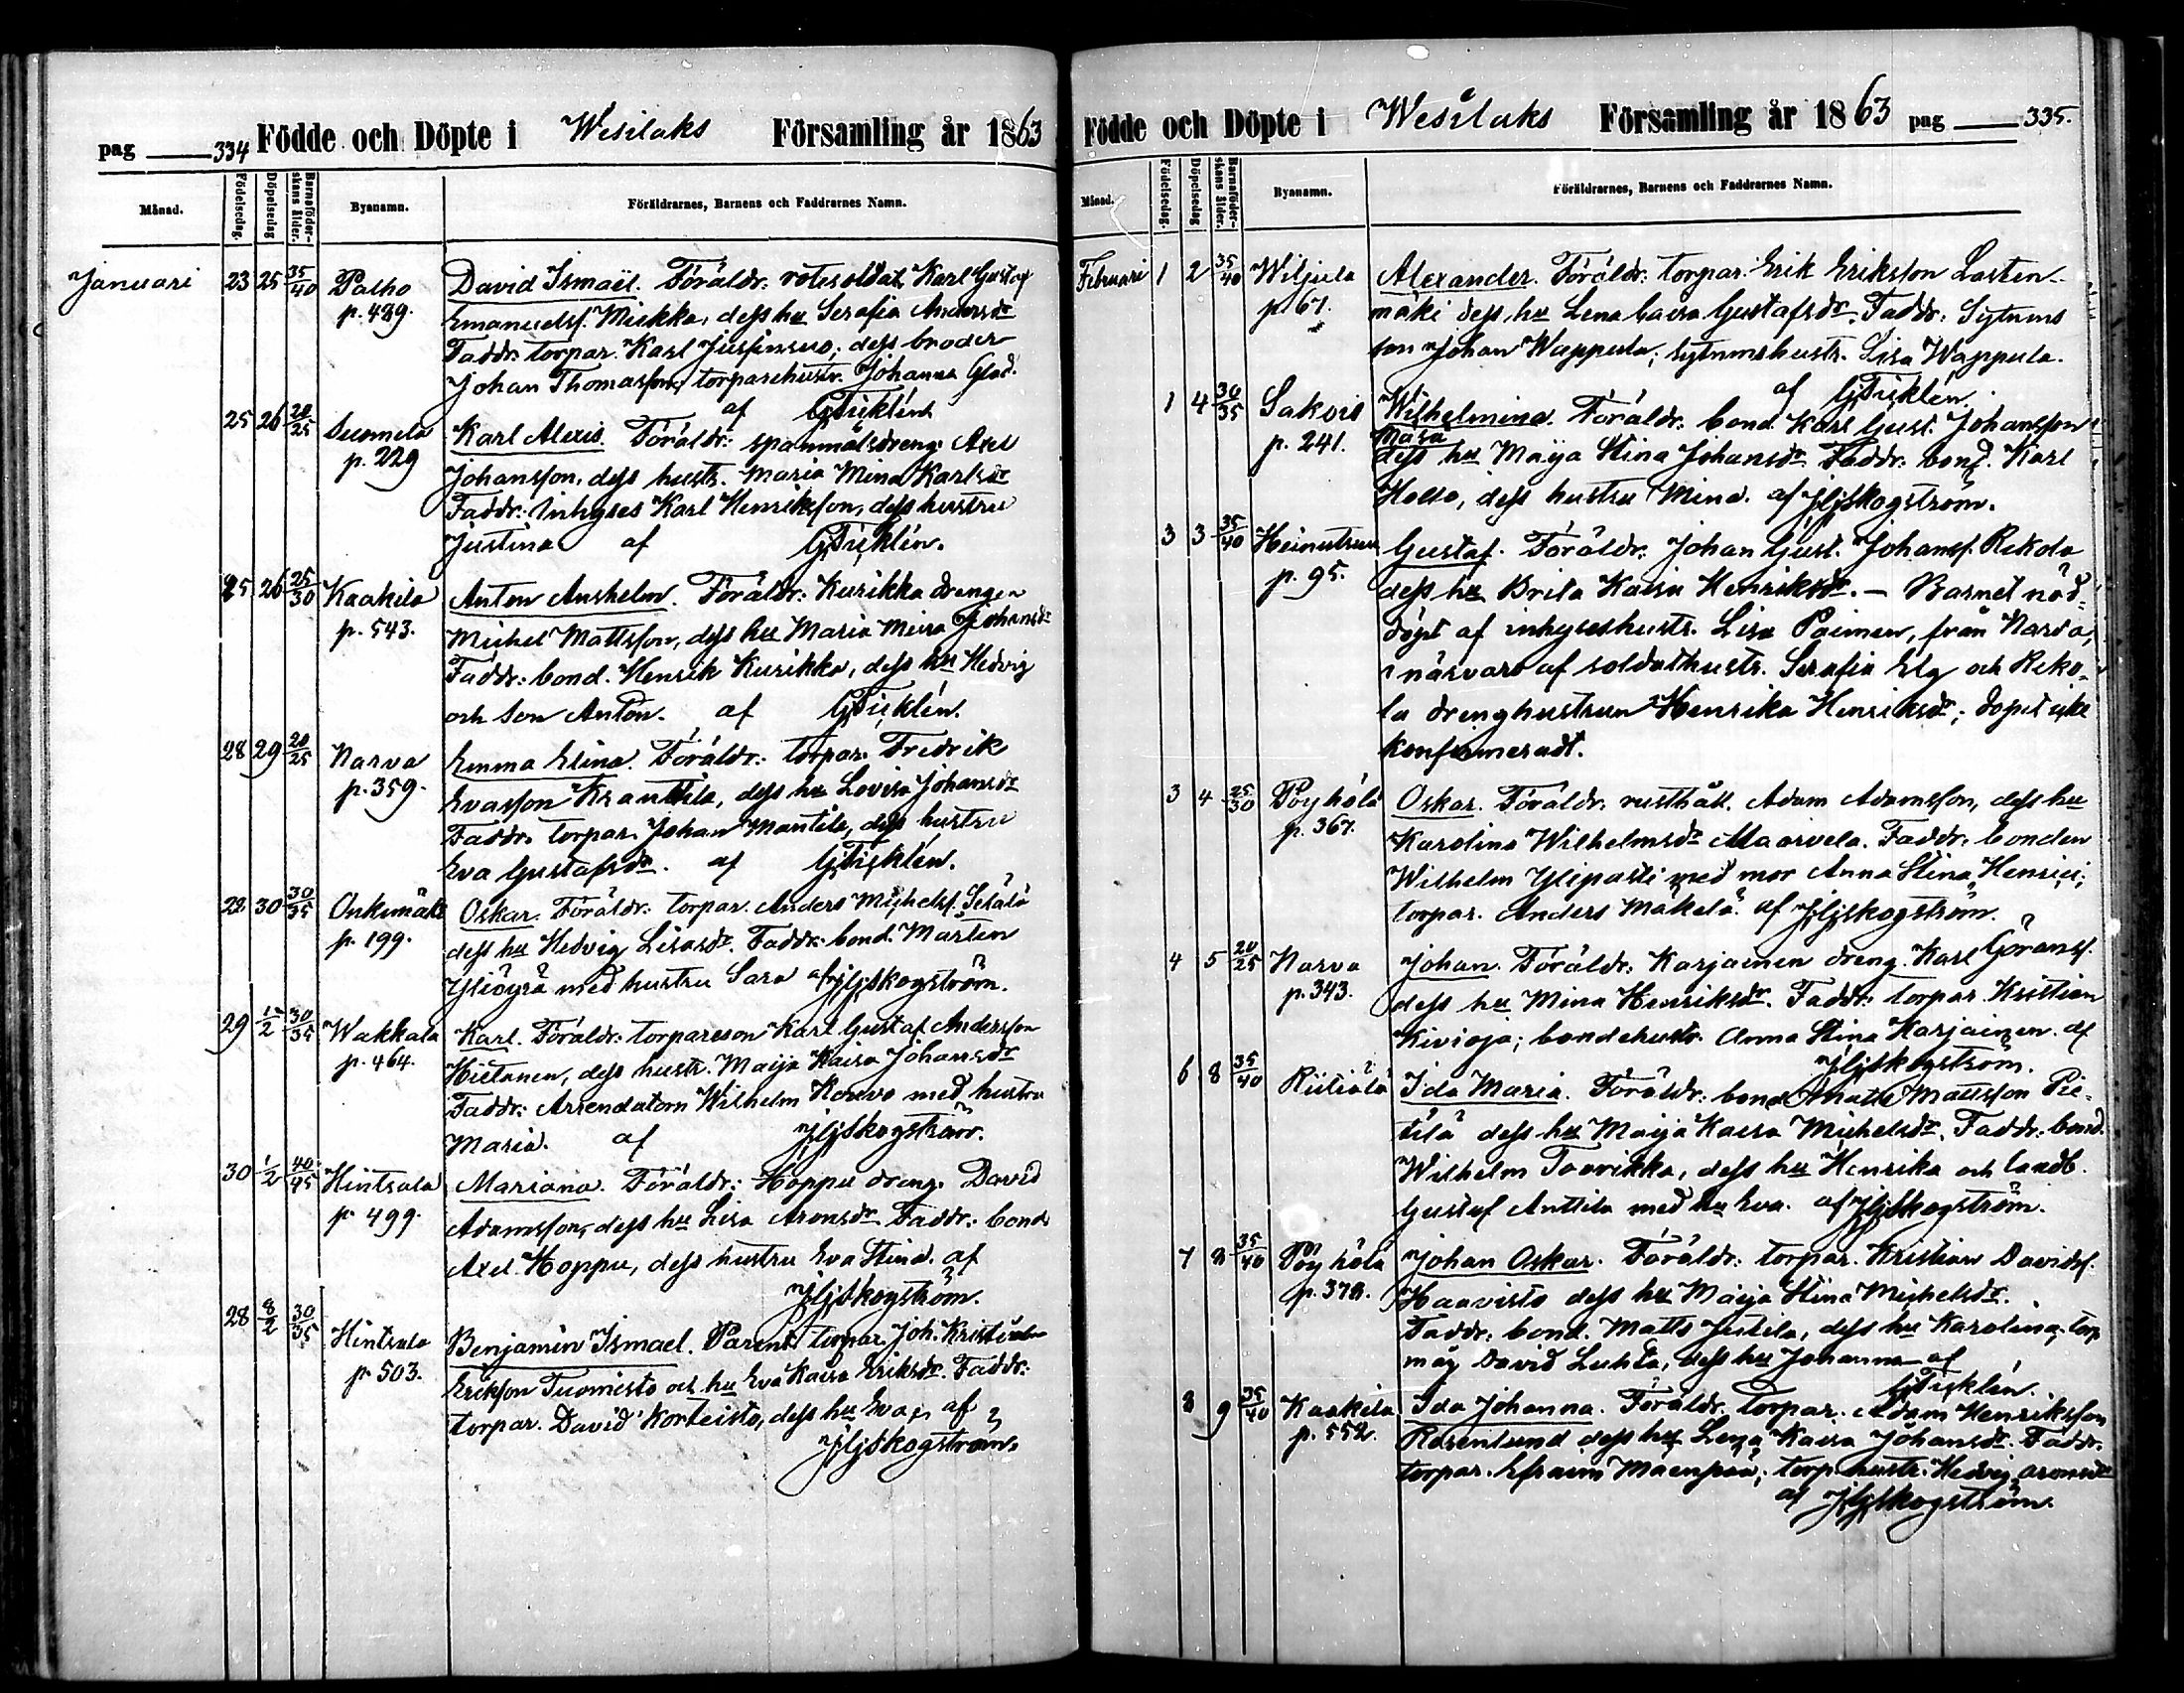 pag 334 Födde och Döpte i Wesilaks Församling år 1863
Månad. Födelsedag. Döpelsedag Barnaföderskans ålder. Byanamn. Föräldrarnes, Barnens och Faddrarnes Namn.
Januari 23 25 35/40 Palho David Ismaël. Föräldr: rotesoldat Karl Gustaf
p. 489. Emanuelsf. Miekka, dess hu Serafia Andersdr
Faddr: torpar. Karl Jussinsuo; dess broder
Johan Thomasson, torparehustr. Johanna Glad.
af GFicklén
25 26 20/25 Suomela Karl Alexis. Föräldr: spanmålsdreng Axel
p. 229 Johansson, dess hustr. Maria Mina Karlsdr
Faddr: Inhyses Karl Henriksson, dess hustru
Justina af GFicklén.
25 26 25/30 Kaakila Anton Anshelm. Föräldr: Kurikka drengen
p. 543. Michel Mattsson, dess hu Maria Meira Johansdr
Faddr: bond. Henrik Kurikka, dess hu Hedvig
och son Anton. af GFicklén.
28 29 20/25 Narva Emma Elina. Föräldr: torpar. Fredrik
p. 359. Evasson Krantila, dess hu Lovisa Johansdr
Faddr. torpar. Johan Mantila, dess hustru
Eva Gustafsdr. af GFicklén.
22 30 30/35 Onkemäki Oskar. Föräldr: torpar. Anders Michelsf. Selälä
p. 199. dess hu Hedvig Lisasdr. Faddr: bond. Marten
Yliöyrä med hustru Sara af JHSkogström.
29 1/2 30/35 Wakkala Karl. Föräldr: torpareson Karl Gustaf Andersson
p. 464. Hietanen, dess hustr. Maija Kaisa Johansdr
Faddr: Arrendatorn Wilhelm Konvo med hustru
Maria. af JHSkogström.
30 1/2 40/45 Hintsala Mariana. Föräldr: Hoppu dreng. David
p. 499. Adamsson, dess hu Lisa Aronsdr Faddr: bond
Axel Hoppu, dess hustru Eva Stina. af
JHSkogström.
28 8/2 30/35 Hintsala Benjamin Ismael. Parent: torpar. Joh. Kristian
p. 503. Eriksson Tuomisto och hu Eva Kaisa Eriksdr. Faddr:
torpar. David Korteisto, dess hu Eva; af
JHSkogström.
Födde och Döpte i Wesilaks Församling år 1863 pag 335.
Månad. Födelsedag. Döpelsedag Barnaföderskans ålder. Byanamn. Föräldrarnes, Barnens och Faddrarnes Namn.
Februari 1 2 35/40 Wiljula Alexander. Föräldr: torpar. Erik Eriksson Lasten-
p. 61. mäki dess hu Lena Caisa Gustafsdr. Faddr: Sytnings
son Johan Wappula; sytningshustr. Lisa Wappula.
af GFicklén.
1 4 30/35 Sakois Wilhelmina. Föräldr: bond. Karl Gust. Johansson
p. 241. Masa dess hu Maija Stina Johansdr. Faddr: bond. Karl
Hollo, dess hustru Mina. af JHSkogström.
3 3 35/40 Heinistuun Gustaf. Föräldr: Johan Gust. Johansf. Rekola
p. 95. dess hu Brita Kaisa Henriksdr. – Barnet nöd-
döpt af inhyseshustr. Lisa Paimen, från Narva,
i närvaro af soldathustr. Serafia Elg och Reko-
la drenghustrun Henrika Henriksdr; dopet icke
konfirmeradt.
3 4 25/30 Pöyhölä Oskar. Föräldr: rusthåll. Adam Adamsson, dess hu
p. 367. Karolina Wilhelmsdr Maarvela. Faddr: bonden
Wilhelm Ylipasti med mor Anna Stina Henrici;
torpar. Anders Mäkelä. af JHSkogström.
4 5 20/25 Narva Johan. Föräldr: Karjainen dreng. Karl Göransf.
p. 343. dess hu Mina Henriksdr. Faddr: torpar. Kristian
Kivioja; bondehustr. Anna Stina Karjainen. af
JHSkogström.
6 8 35/40 Riitiälä Ida Maria. Föräldr: bond. Matts Mattsson Pie-
tilä dess hu Maija Kaisa Michelsdr. Faddr: bond.
Wilhelm Tourikka, dess hu Henrika och landb.
Gustaf Anttila med hu Eva. af JHSkogström.
7 8 35/40 Pöyhölä Johan Oskar. Föräldr: torpar. Kristian Davidsf.
p. 378. Haavisto dess hu Maija Stina Michelsdr.
Faddr: bond. Matts Jutila, dess hu Karolina; torp
måg David Luhta, dess hu Johanna af
GFicklén.
8 9 35/40 Kaakila Ida Johanna. Föräldr: torpar. Adam Henriksson
p. 552. Rosenlund dess hu Lena Kaisa Johansdr. Faddr:
torpar. Efraim Mäenpää; torp. hustr. Hedvig Aronsdr
af JHSkogström.